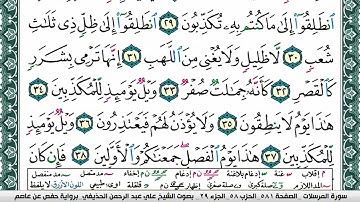 ٱنطَلِقُوٓا۟ إِلَىٰ مَا كُنتُم بِهِۦ تُكَذِّبُونَ ٢٩ ٱنطَلِقُوٓا۟ إِلَىٰ ظِلٍّ ذِى ثَلَٰثِ
شُعَبٍ ٣٠ لَّا ظَلِيلٍ وَلَا يُغْنِى مِنَ ٱللَّهَبِ ٣١ إِنَّهَا تَرْمِى بِشَرَرٍ
كَٱلْقَصْرِ ٣٢ كَأَنَّهُۥ جِمَٰلَتٌ صُفْرٌ ٣٣ وَيْلٌ يَوْمَئِذٍ لِّلْمُكَذِّبِينَ ٣٤
هَٰذَا يَوْمُ لَا يَنطِقُونَ ٣٥ وَلَا يُؤْذَنُ لَهُمْ فَيَعْتَذِرُونَ ٣٦ وَيْلٌ يَوْمَئِذٍ
لِّلْمُكَذِّبِينَ ٣٧ هَٰذَا يَوْمُ ٱلْفَصْلِ جَمَعْنَٰكُمْ وَٱلْأَوَّلِينَ ٣٨ فَإِن كَانَ
سورة المرسلات الصفحة ٥٨١ الحزب ٥٨ الجزء ٢٩ بصوت الشيخ علي عبد الرحمن الحذيفي برواية حفص عن عاصم